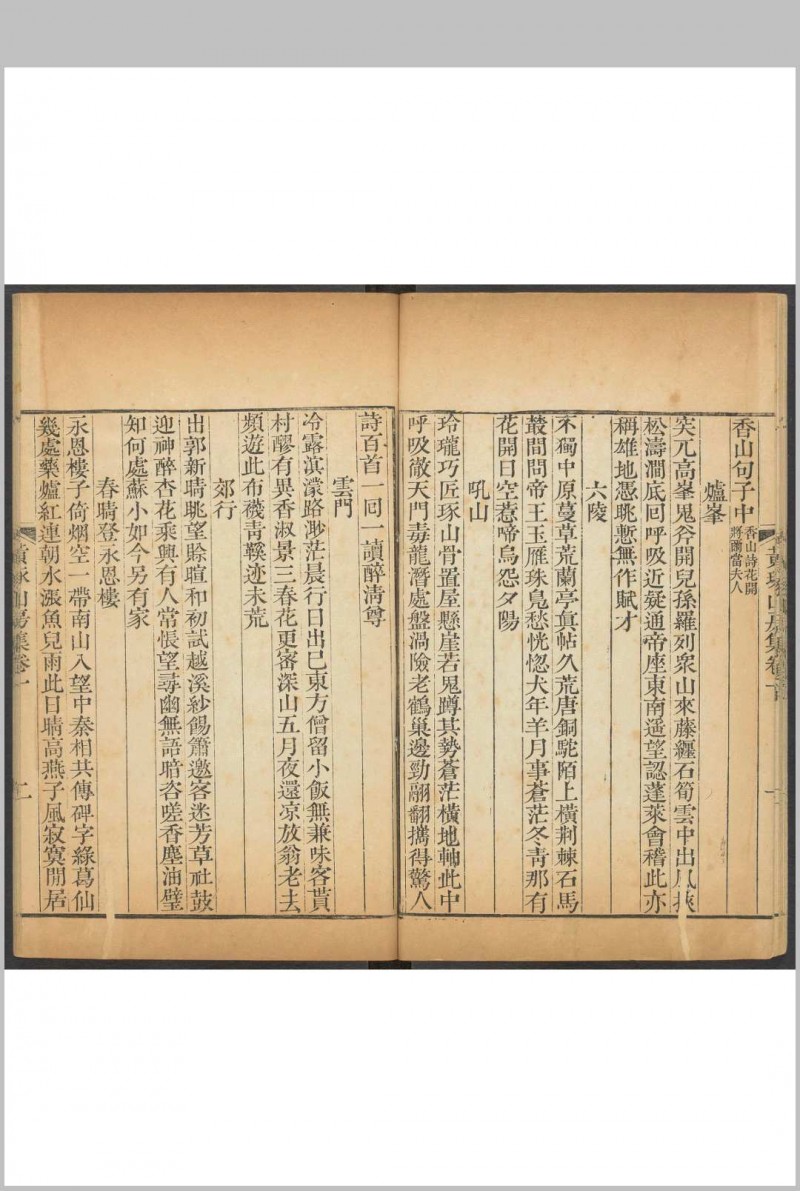 香山句子中香山詩花開
將爾當夫人
爐峯
突兀高峯鬼斧開兒孫羅列衆山來藤纒石筍雲中出風挾
松濤澗底回呼吸近疑通帝座東南遥望認蓬萊會稽此亦
稱雄地憑眺慙無作賦才
六陵
不獨中原蔓草荒蘭亭眞帖久荒唐銅駝陌上橫荆棘石馬
叢間問帝王玉雁珠鳧愁恍惚犬年羊月事蒼茫冬青那有
花開日空惹啼烏怨夕陽
吼山
玲瓏巧匠琢山骨置屋懸崖若鬼蹲其勢蒼茫橫地軸此中
呼吸徹天門毒龍潛處盤渦險老鶴巢邊勁翮翻攜得驚人
黃琢山房集卷一
詩百首一回一讀醉淸尊
雲門
冷露濛濛路渺茫晨行日出已東方僧留小飯無兼味客貰
村醪有異香淑景三春花更密深山五月夜還凉放翁老去
頻遊此布襪靑鞵迹未荒
郊行
出郭新晴眺望賒暄和初試越溪紗餳簫邀客迷芳草社鼓
迎神醉杏花乘興有人常悵望尋幽無語暗咨嗟香塵油壁
知何處蘇小如今另有家
春晴登永恩樓
永恩樓子倚烟空一帶南山入望中秦相共傳碑字綠葛仙
幾處藥爐紅連朝水漲魚兒雨此日晴高燕子風寂寞閒居
黃琢山房集卷一
二